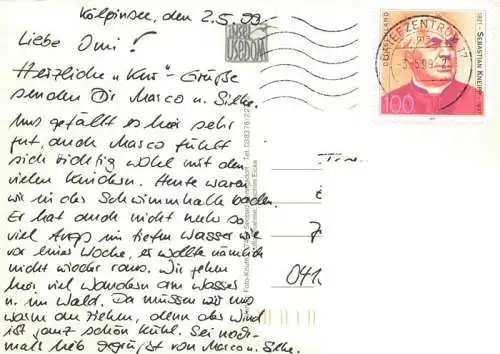 Kölpinsee, den 2.5.99
Liebe Omi!
Herzliche "Kur"-Grüße
senden Dir Marco u. Silke.
Uns gefällt es hier sehr
gut, auch Marco fühlt
sich richtig wohl mit den
vielen Kindern. Heute waren
wir in der Schwimmhalle baden.
Er hat auch nicht mehr so
viel Angst im tiefen Wasser wie
vor einer Woche, er wollte nämlich
nicht wieder raus. Wir gehen
hier viel Wandern am Wasser
u. im Wald. Da müssen wir uns
warm an ziehen, denn der Wind
ist ganz schön kühl. Sei noch-
mall lieb gegrüßt von Marco u. Silke.
Insel
USEDOM
BRIEFZENTRUM 17
DEUTSCHLAND
1821 - SEBASTIAN KNEIPP - 1897
100
041